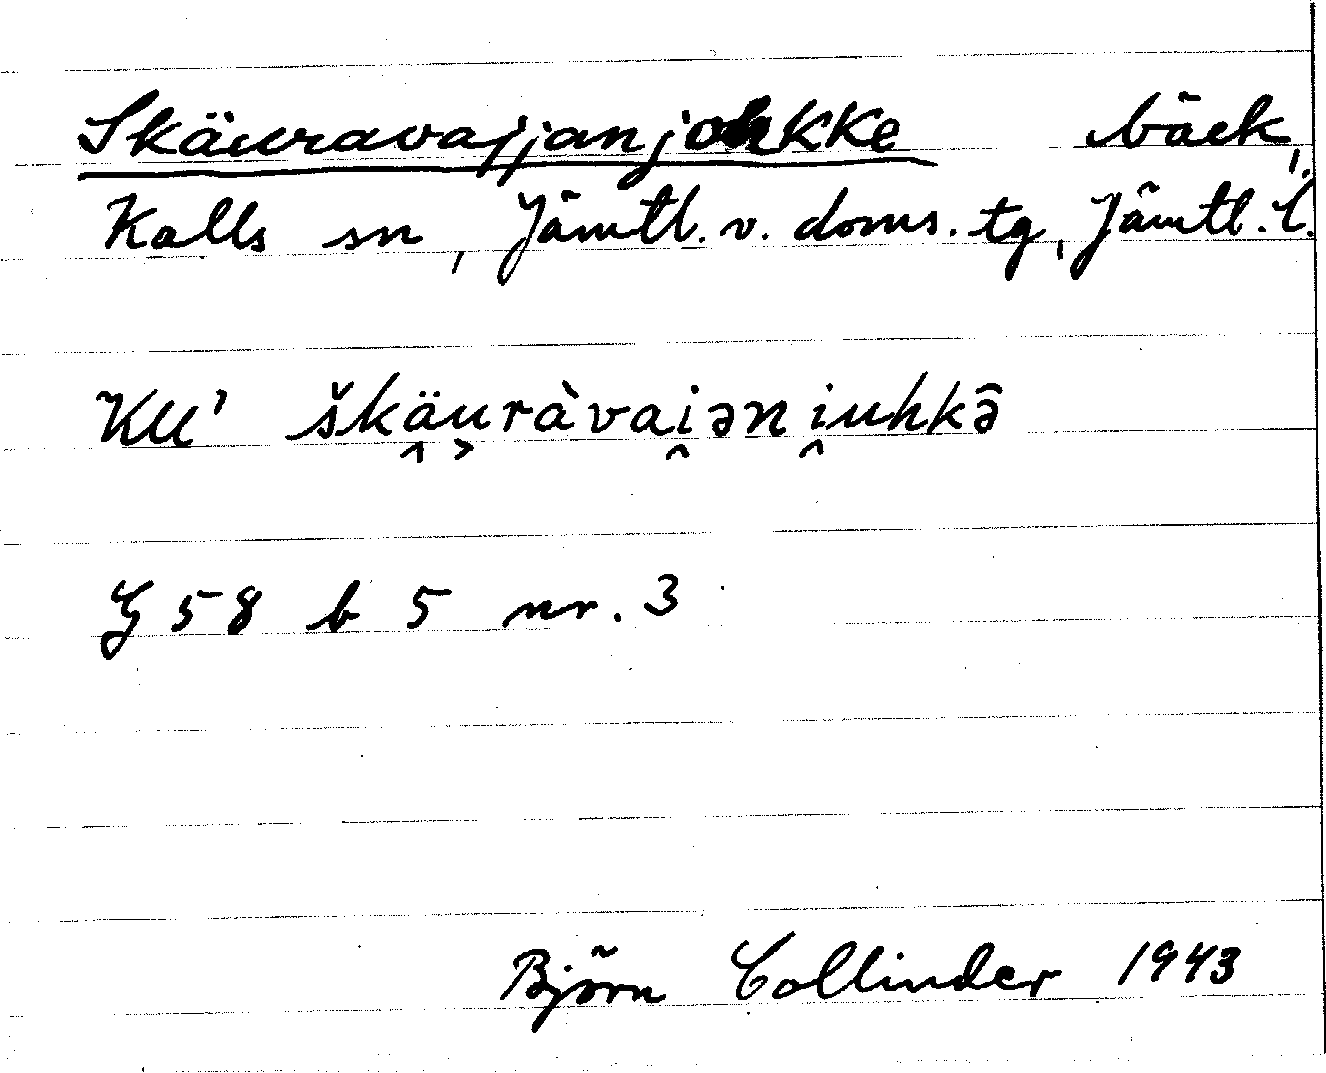 Skäuravajjanjokke bäck,
Kalls sn, Jämtl. v. doms. tg, Jämtl. l.
KU' škä̭u̬ràvai̭əni̭uhkə̄̂
G 58 b 5 nr. 3
Björn Collinder 1943